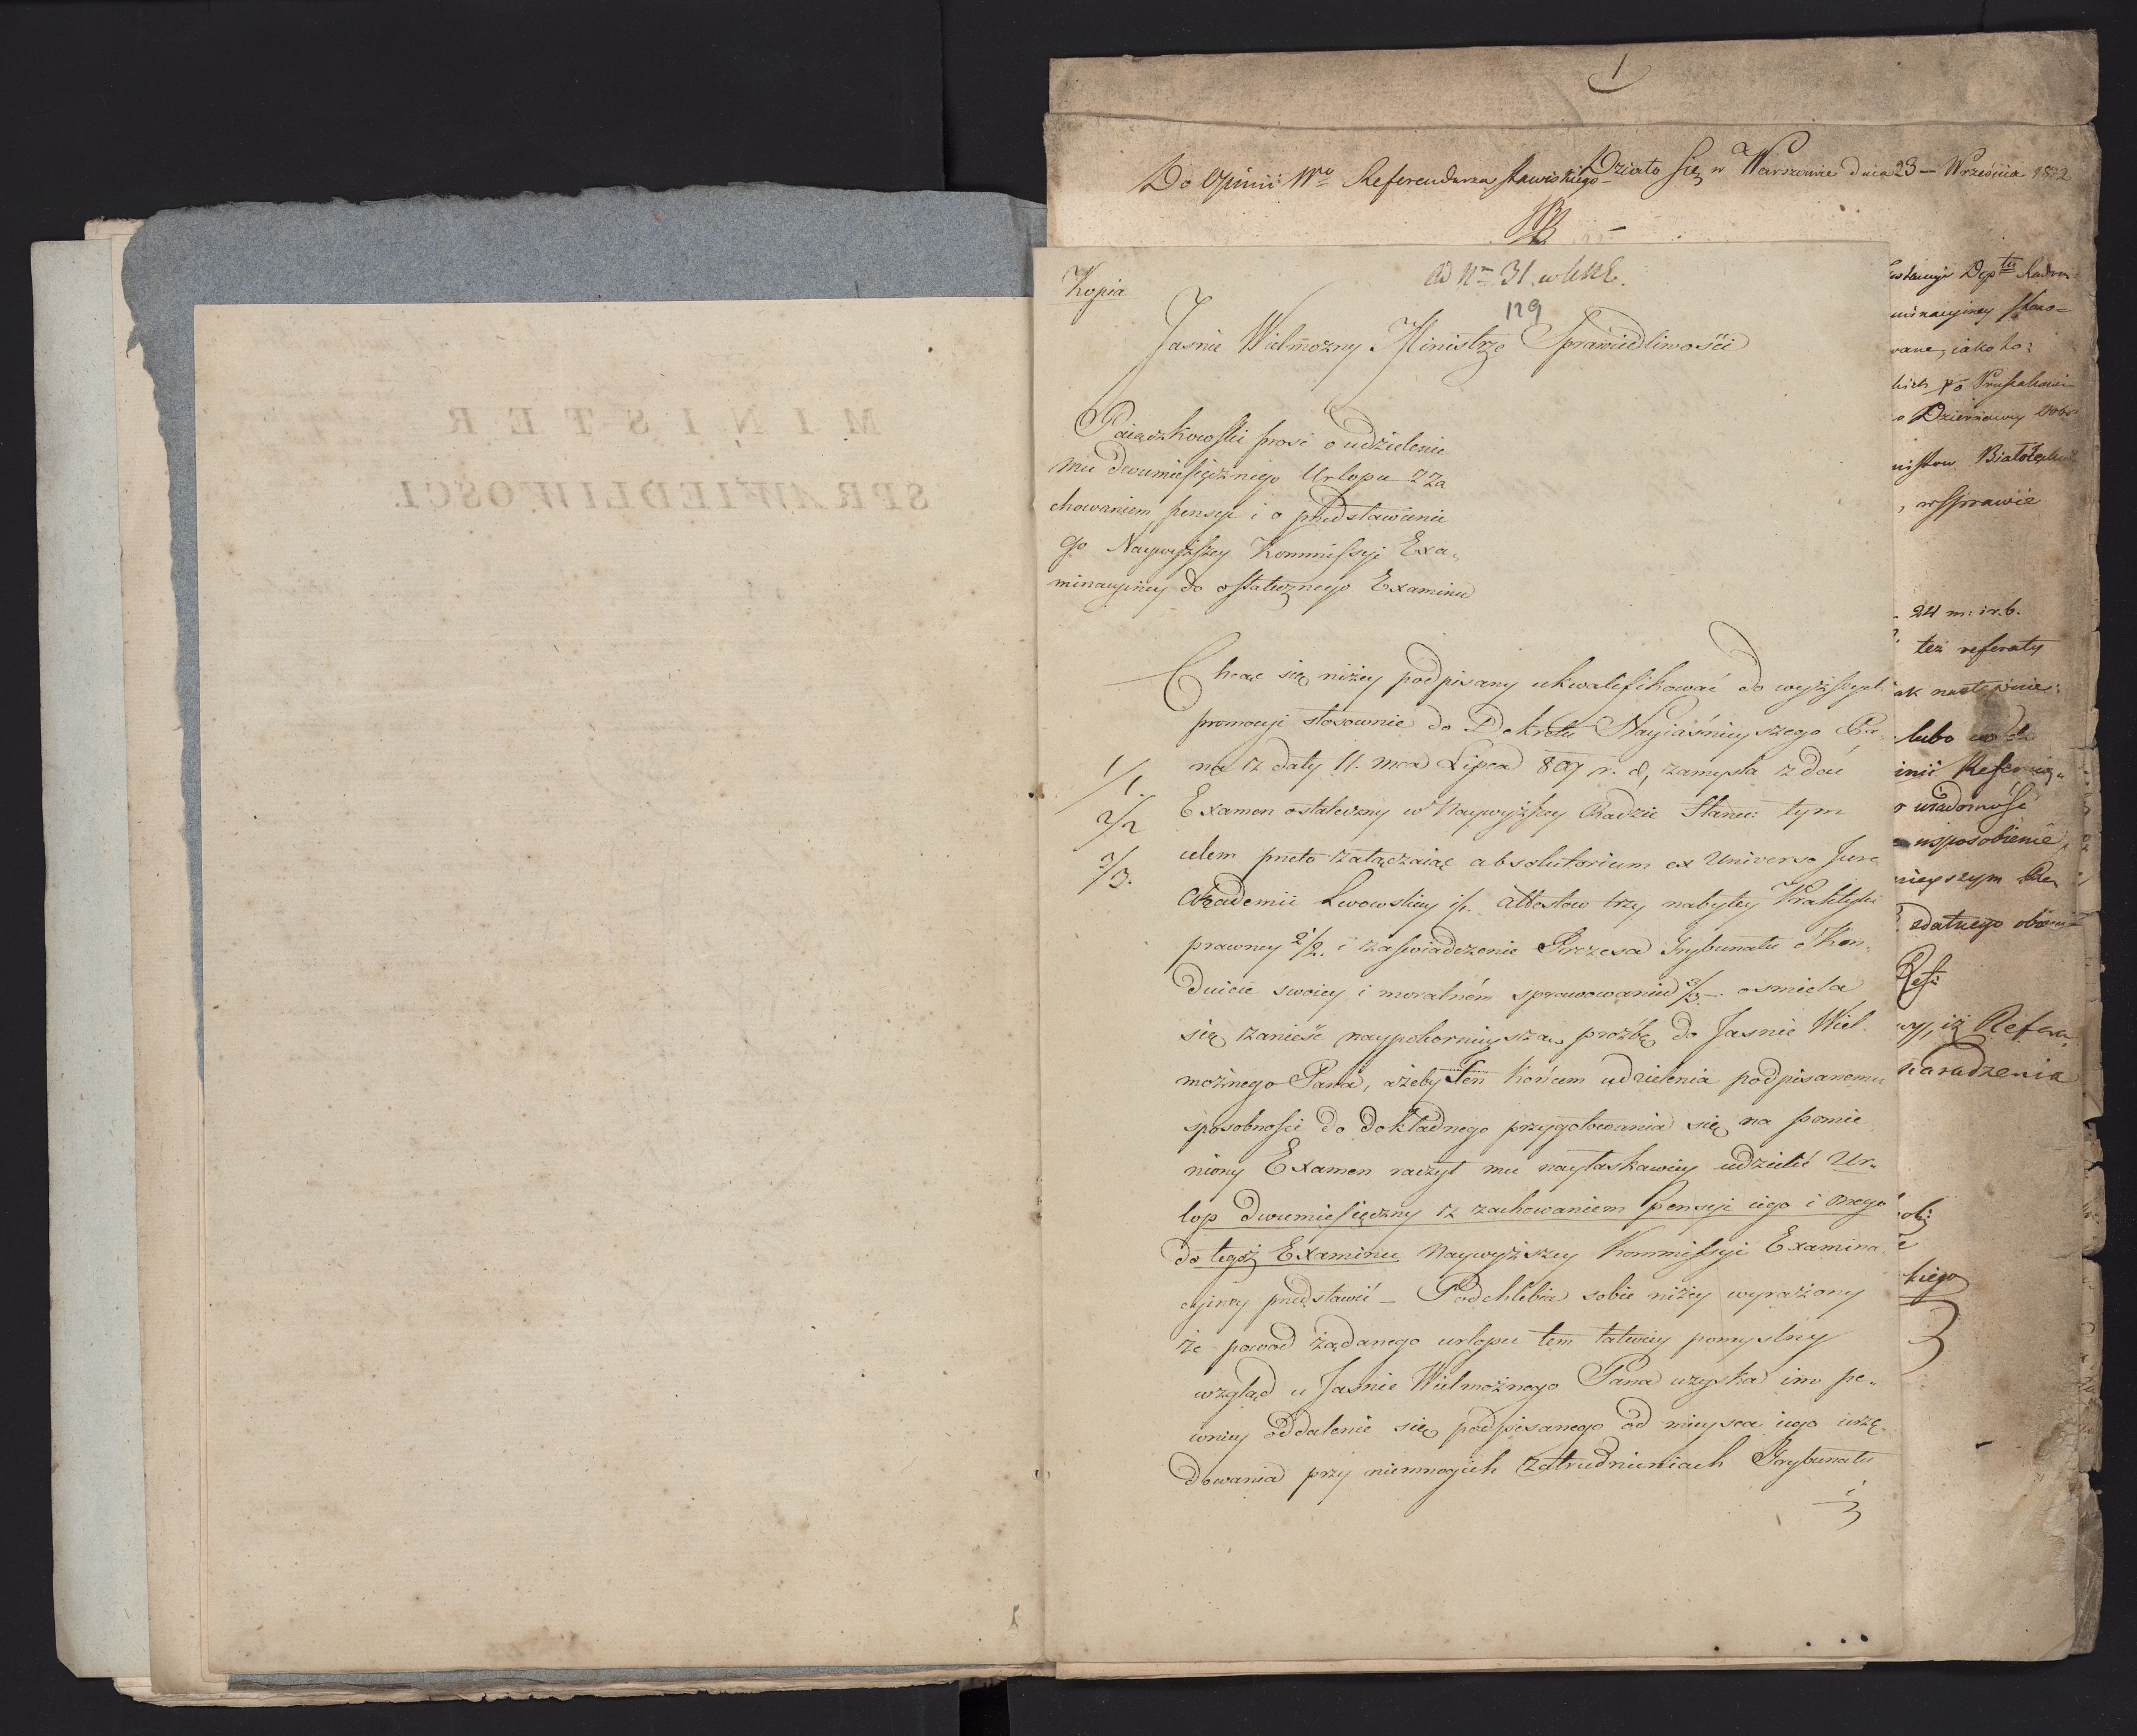 1
Do Opinii Wgo Referendarza Sławiskiego Działo się w Warszawie dnia 23 – Września 1822
Kopia
ad Nm 31. w
129
Jaśnie Wielmożny Ministrze Sprawiedliwości
Paiączkowski prosi o udzielenie
mu dwumiesięcznego Urlopu z Za
chowaniem pensyi i o przedstawienie
go Naywyższey Kommissyi Exa„
minacyiney do ostatecznego Examinu
Chcąc się niżey podpisany ukwalifikować do wyższych
promocyi stosownie do Dekretu Nayiaśnieyszego Pa„
na z daty 11. mca Lipca 809 r. d, zamyśla zdać
Examen ostateczny w Naywyższey Radzie Stanu: tym
celem przeto załączaiąc absolutorium ex Universo Jure
Akademii Lwowskiey attestow trzy nabytey Praktyki
prawney 2/2. i zaświadczenie Prezesa Trybunału o Kon„
duicie swoiey i moralném sprawowaniu 3/3 – ośmiela
się zanieść naypokornieyszą prożbę do Jaśnie Wiel„
możnego Pana, ażeby Ten końcem udzielenia podpisanemu
sposobności do dokładnego przygotowania się na pomie
niony Examen raczył mu nayłaskawiey udzielić Ur„
lop dwumiesięczny z zachowaniem pensyi iego i onego
do tegoż Examinu Naywyższey Kommissyi Examina„
cyiney przedstawić – Podchlebia sobie niżey wyrażony
że powod żądanego urlopu tem łatwiey pomyślny
wzgląd u Jaśnie Wielmożnego Pana uzyska im pe„
wniey oddalenie się podpisanego od mieysca iego urzę„
dowania przy niemnogich zatrudnieniach Trybunału
i
1/1.
2/2
3/3.
Dptu Radom
minacyiney
wane, iako to:
o Dzierżawy
, w sprawie
24 m: i r. b.
też referaty
ak następuie:
lubo
inii Referen„
wiadomość
usposobienie,
nieyszym
Ref:
wy, iż Refera
naradzenia
kiego
MINISTER
SPRAWIEDLIWOŚCI.